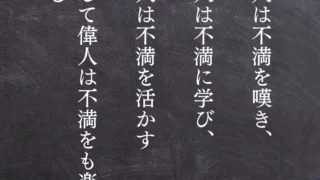 は不満を嘆き、
は不満に学び、
は不満を活かす
して偉人は不満をも